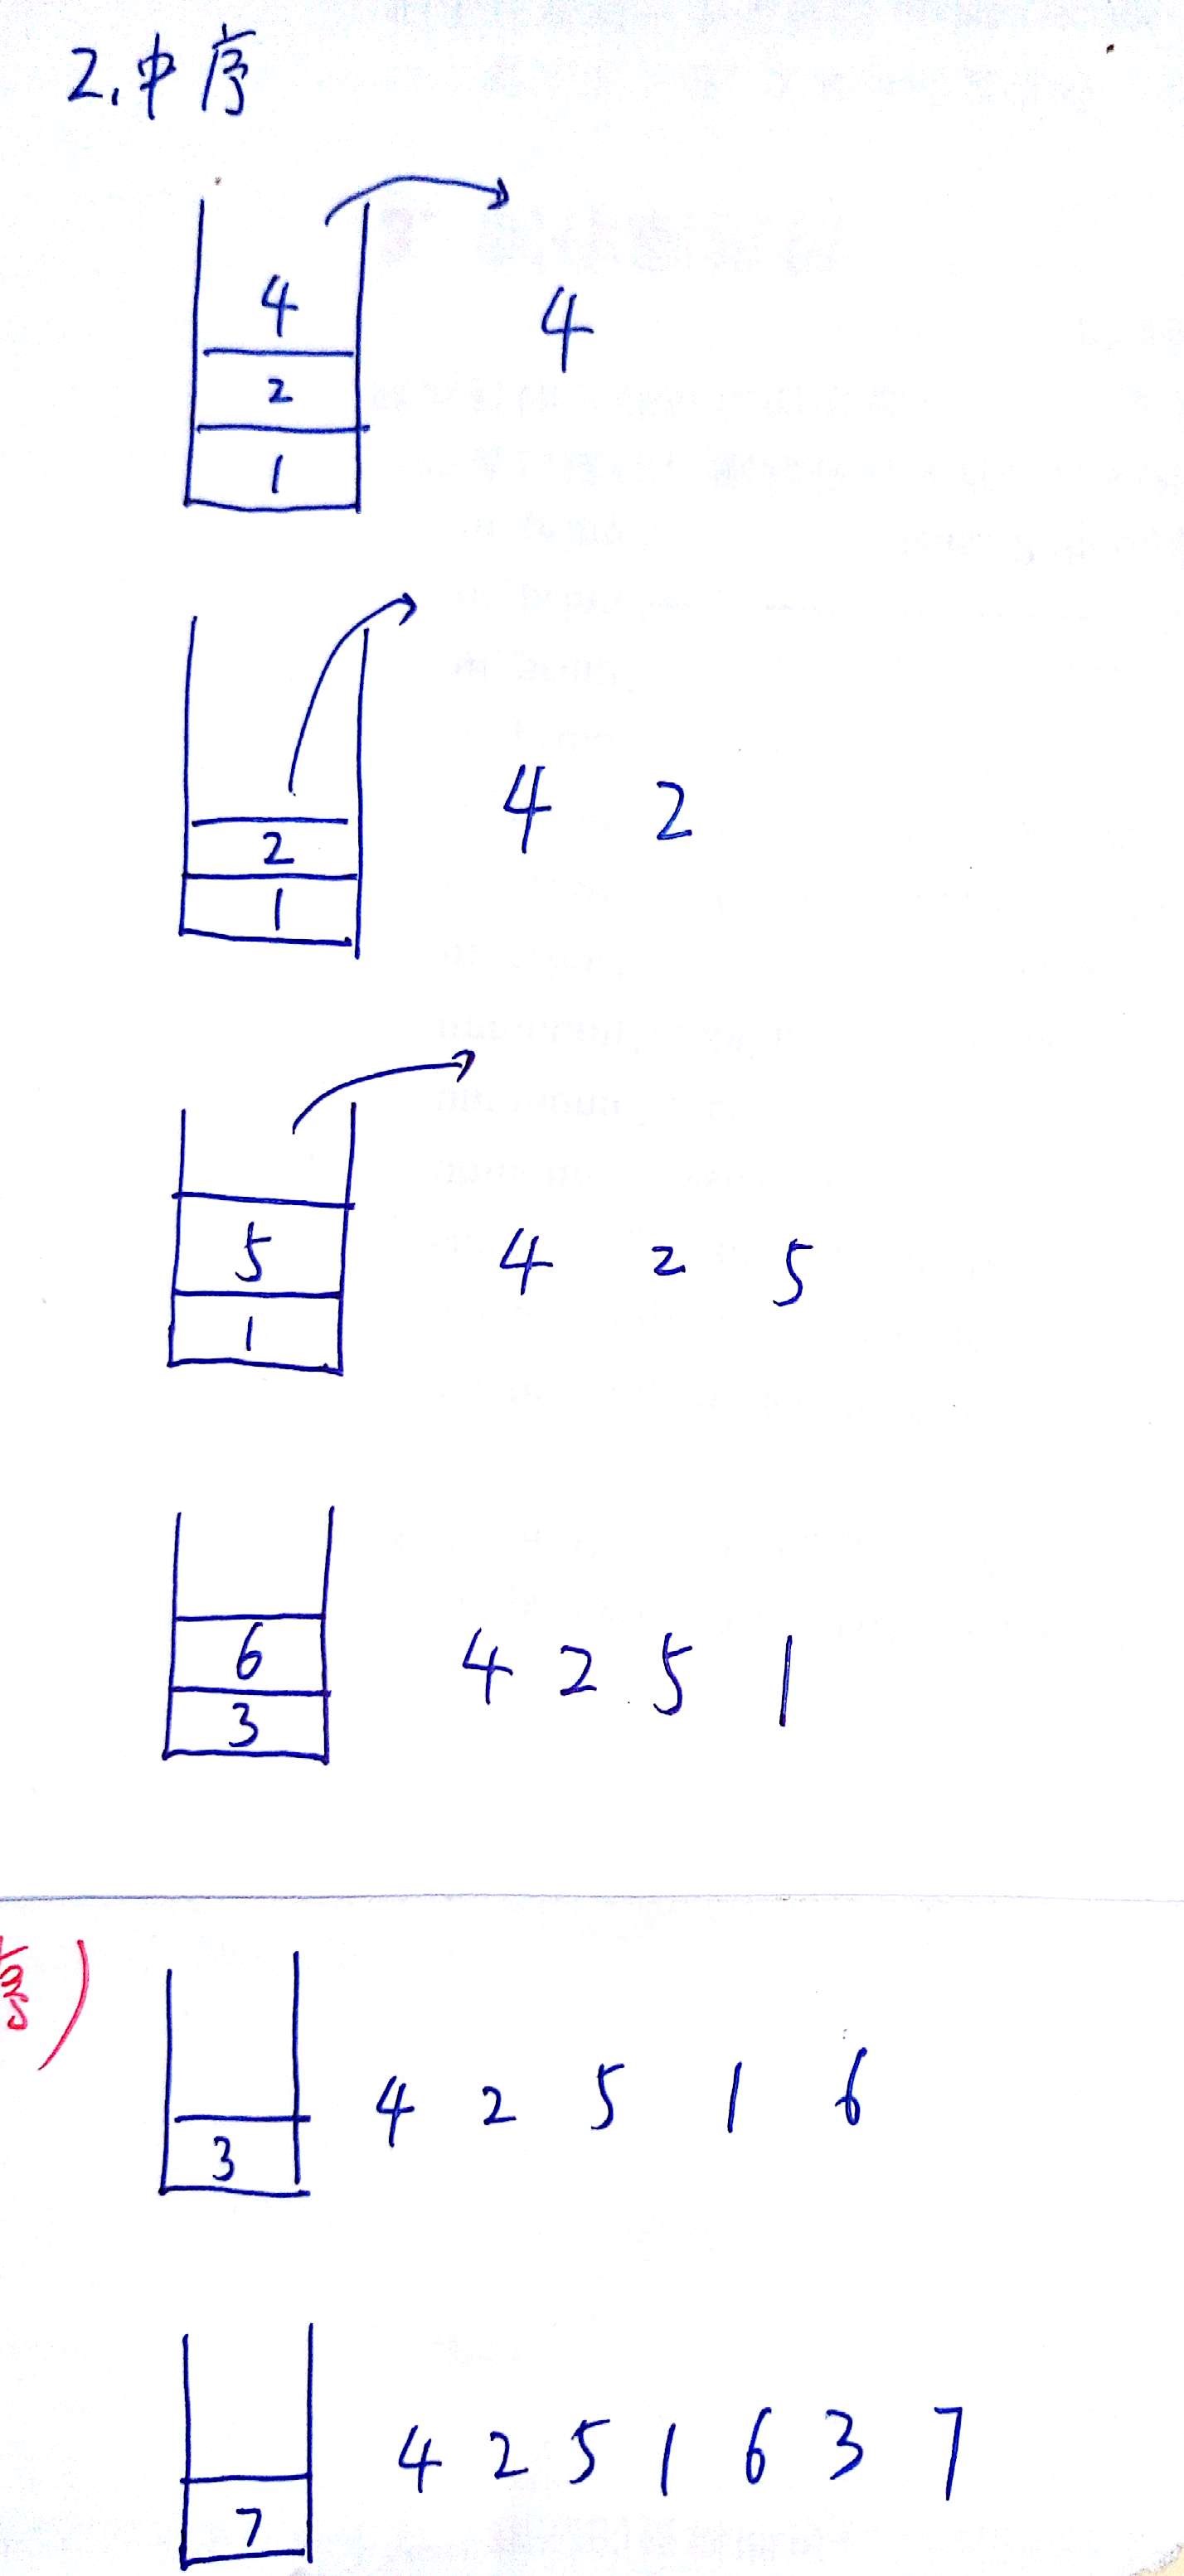 2.中序
4
2
1
4
2
1
4 2
5
1
4 2 5
6
3
4 2 5 1
序)
3
4 2 5 1 6
7
4 2 5 1 6 3 7